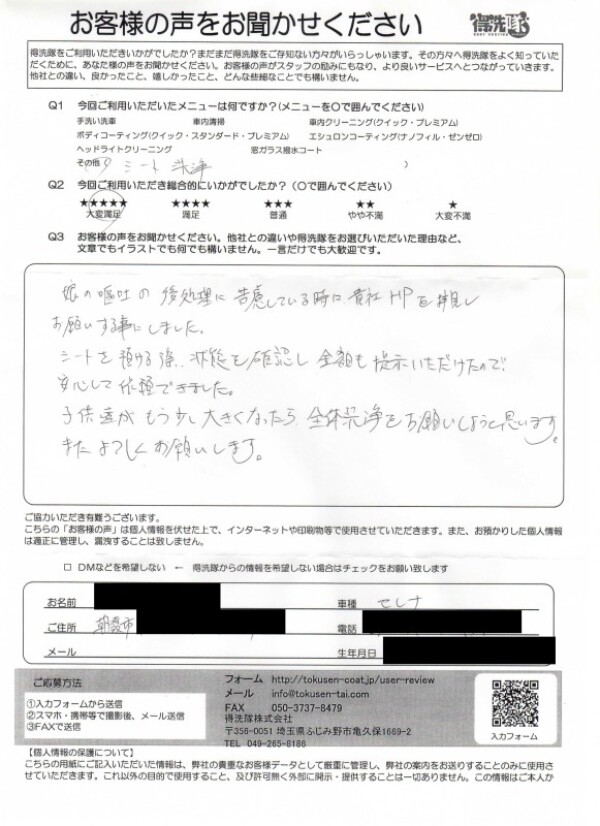 お客様の声をお聞かせください
得洗隊
得洗隊をご利用いただきいかがでしたか？まだまだ得洗隊をご存知ない方々がいらっしゃいます。その方々へ得洗隊をよく知っていた
だくために、あなた様の声をお聞かせください。お客様の声がスタッフの励みにもなり、より良いサービスへとつながっていきます。
他社との違い、良かったこと、嬉しかったこと、どんな些細なことでも構いません。
Q1 今回ご利用いただいたメニューは何ですか？(メニューを〇で囲んでください)
手洗い洗車 車内清掃 車内クリーニング(クイック・プレミアム)
ボディコーティング(クイック・スタンダード・プレミアム) エシュロンコーティング(ナノフィル・ゼンゼロ)
ヘッドライトクリーニング 窓ガラス撥水コート
その他( シート洗浄 )
Q2 今回ご利用いただき総合的にいかがでしたか？(〇で囲んでください)
★★★★★ ★★★★ ★★★ ★★ ★
大変満足 満足 普通 やや不満 大変不満
Q3 お客様の声をお聞かせください。他社との違いや得洗隊をお選びいただいた理由など、
文章でもイラストでも何でも構いません。一言だけでも大歓迎です。
娘の嘔吐の後処理に苦慮している時に貴社HPを拝見し
お願いする事にしました。
シートを預ける際、状態を確認し金額も提示いただけたので、
安心して依頼できました。
子供達がもう少し大きくなったら、全体洗浄をお願いしようと思います。
またよろしくお願いします。
ご協力いただき有難うございます。
こちらの「お客様の声」は個人情報を伏せた上で、インターネットや印刷物等で使用させていただきます。また、お預かりした個人情報
は適正に管理し、漏洩することは致しません。
□ DMなどを希望しない ← 得洗隊からの情報を希望しない場合はチェックをお願い致します
お名前 車種 セレナ
ご住所 朝霞市 電話
メール 生年月日
ご応募方法
①入力フォームから送信
②スマホ・携帯等で撮影後、メール送信
③FAXで送信
フォーム http://tokusen-coat.jp/user-review
メール info@tokusen-tai.com
FAX 050-3737-8479
得洗隊株式会社
〒356-0051 埼玉県ふじみ野市亀久保1669-2
TEL 049-265-8186
入力フォーム
【個人情報の保護について】
こちらの用紙にご記入いただいた情報は、弊社の貴重なお客様データとして厳重に管理し、弊社の案内をお送りすることのみに使用さ
せていただきます。これ以外の目的で使用すること、及び許可無く外部に開示・提供することは一切ありません。この情報はご本人か